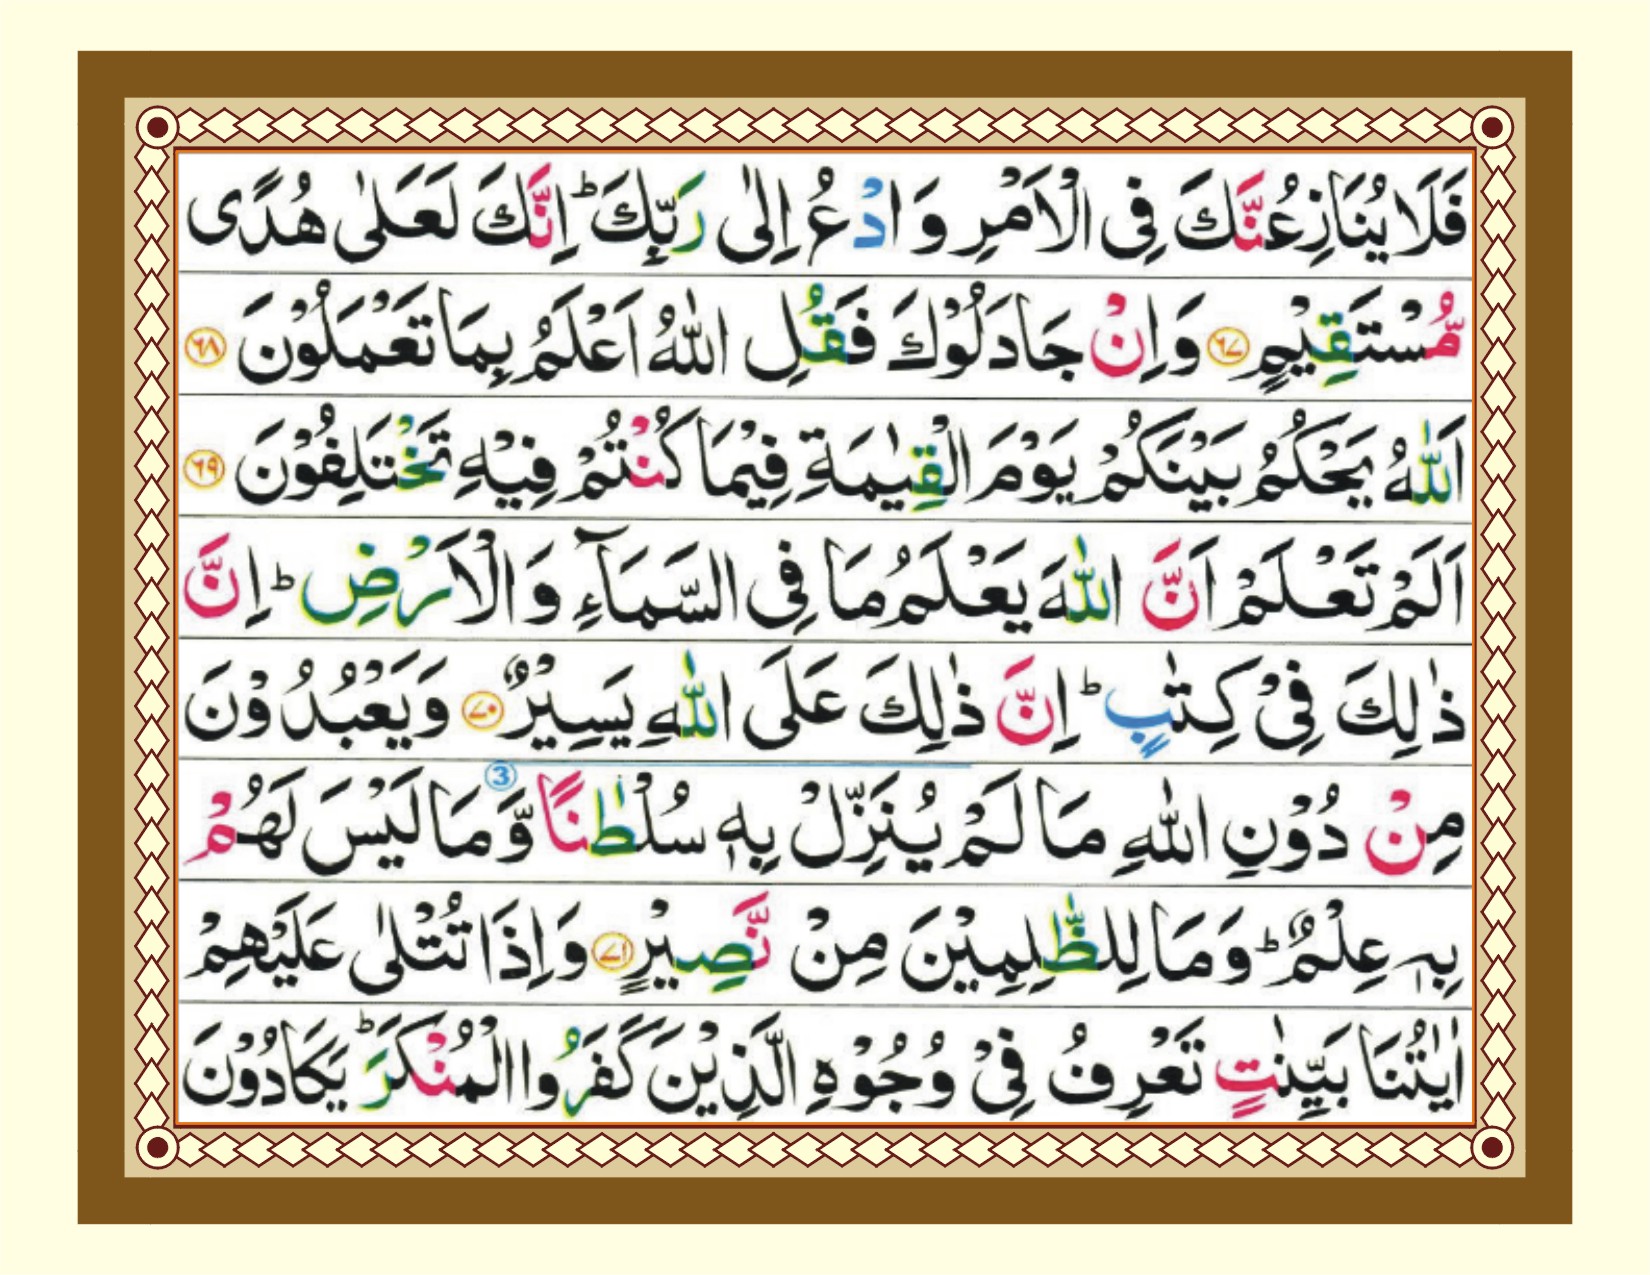 فَلَا يُنَازِعُنَّكَ فِى الْاَمْرِ وَادْعُ اِلٰى رَبِّكَ ؕ اِنَّكَ لَعَلٰى هُدًى
مُّسْتَقِيْمٍ ﴿۶۷﴾ وَاِنْ جَادَلُوْكَ فَقُلِ اللّٰهُ اَعْلَمُ بِمَا تَعْمَلُوْنَ ﴿۶۸﴾
اَللّٰهُ يَحْكُمُ بَيْنَكُمْ يَوْمَ الْقِيٰمَةِ فِيْمَا كُنْتُمْ فِيْهِ تَخْتَلِفُوْنَ ﴿۶۹﴾
اَلَمْ تَعْلَمْ اَنَّ اللّٰهَ يَعْلَمُ مَا فِى السَّمَآءِ وَالْاَرْضِ ؕ اِنَّ
ذٰلِكَ فِىْ كِتٰبٍ ؕ اِنَّ ذٰلِكَ عَلَى اللّٰهِ يَسِيْرٌ ﴿۷۰﴾ وَيَعْبُدُوْنَ
مِنْ دُوْنِ اللّٰهِ مَا لَمْ يُنَزِّلْ بِهٖ سُلْطٰنًا ③ وَّمَا لَيْسَ لَهُمْ
بِهٖ عِلْمٌ ؕ وَمَا لِلظّٰلِمِيْنَ مِنْ نَّصِيْرٍ ﴿۷۱﴾ وَاِذَا تُتْلٰى عَلَيْهِمْ
اٰيٰتُنَا بَيِّنٰتٍ تَعْرِفُ فِىْ وُجُوْهِ الَّذِيْنَ كَفَرُوا الْمُنْكَرَ ؕ يَكَادُوْنَ